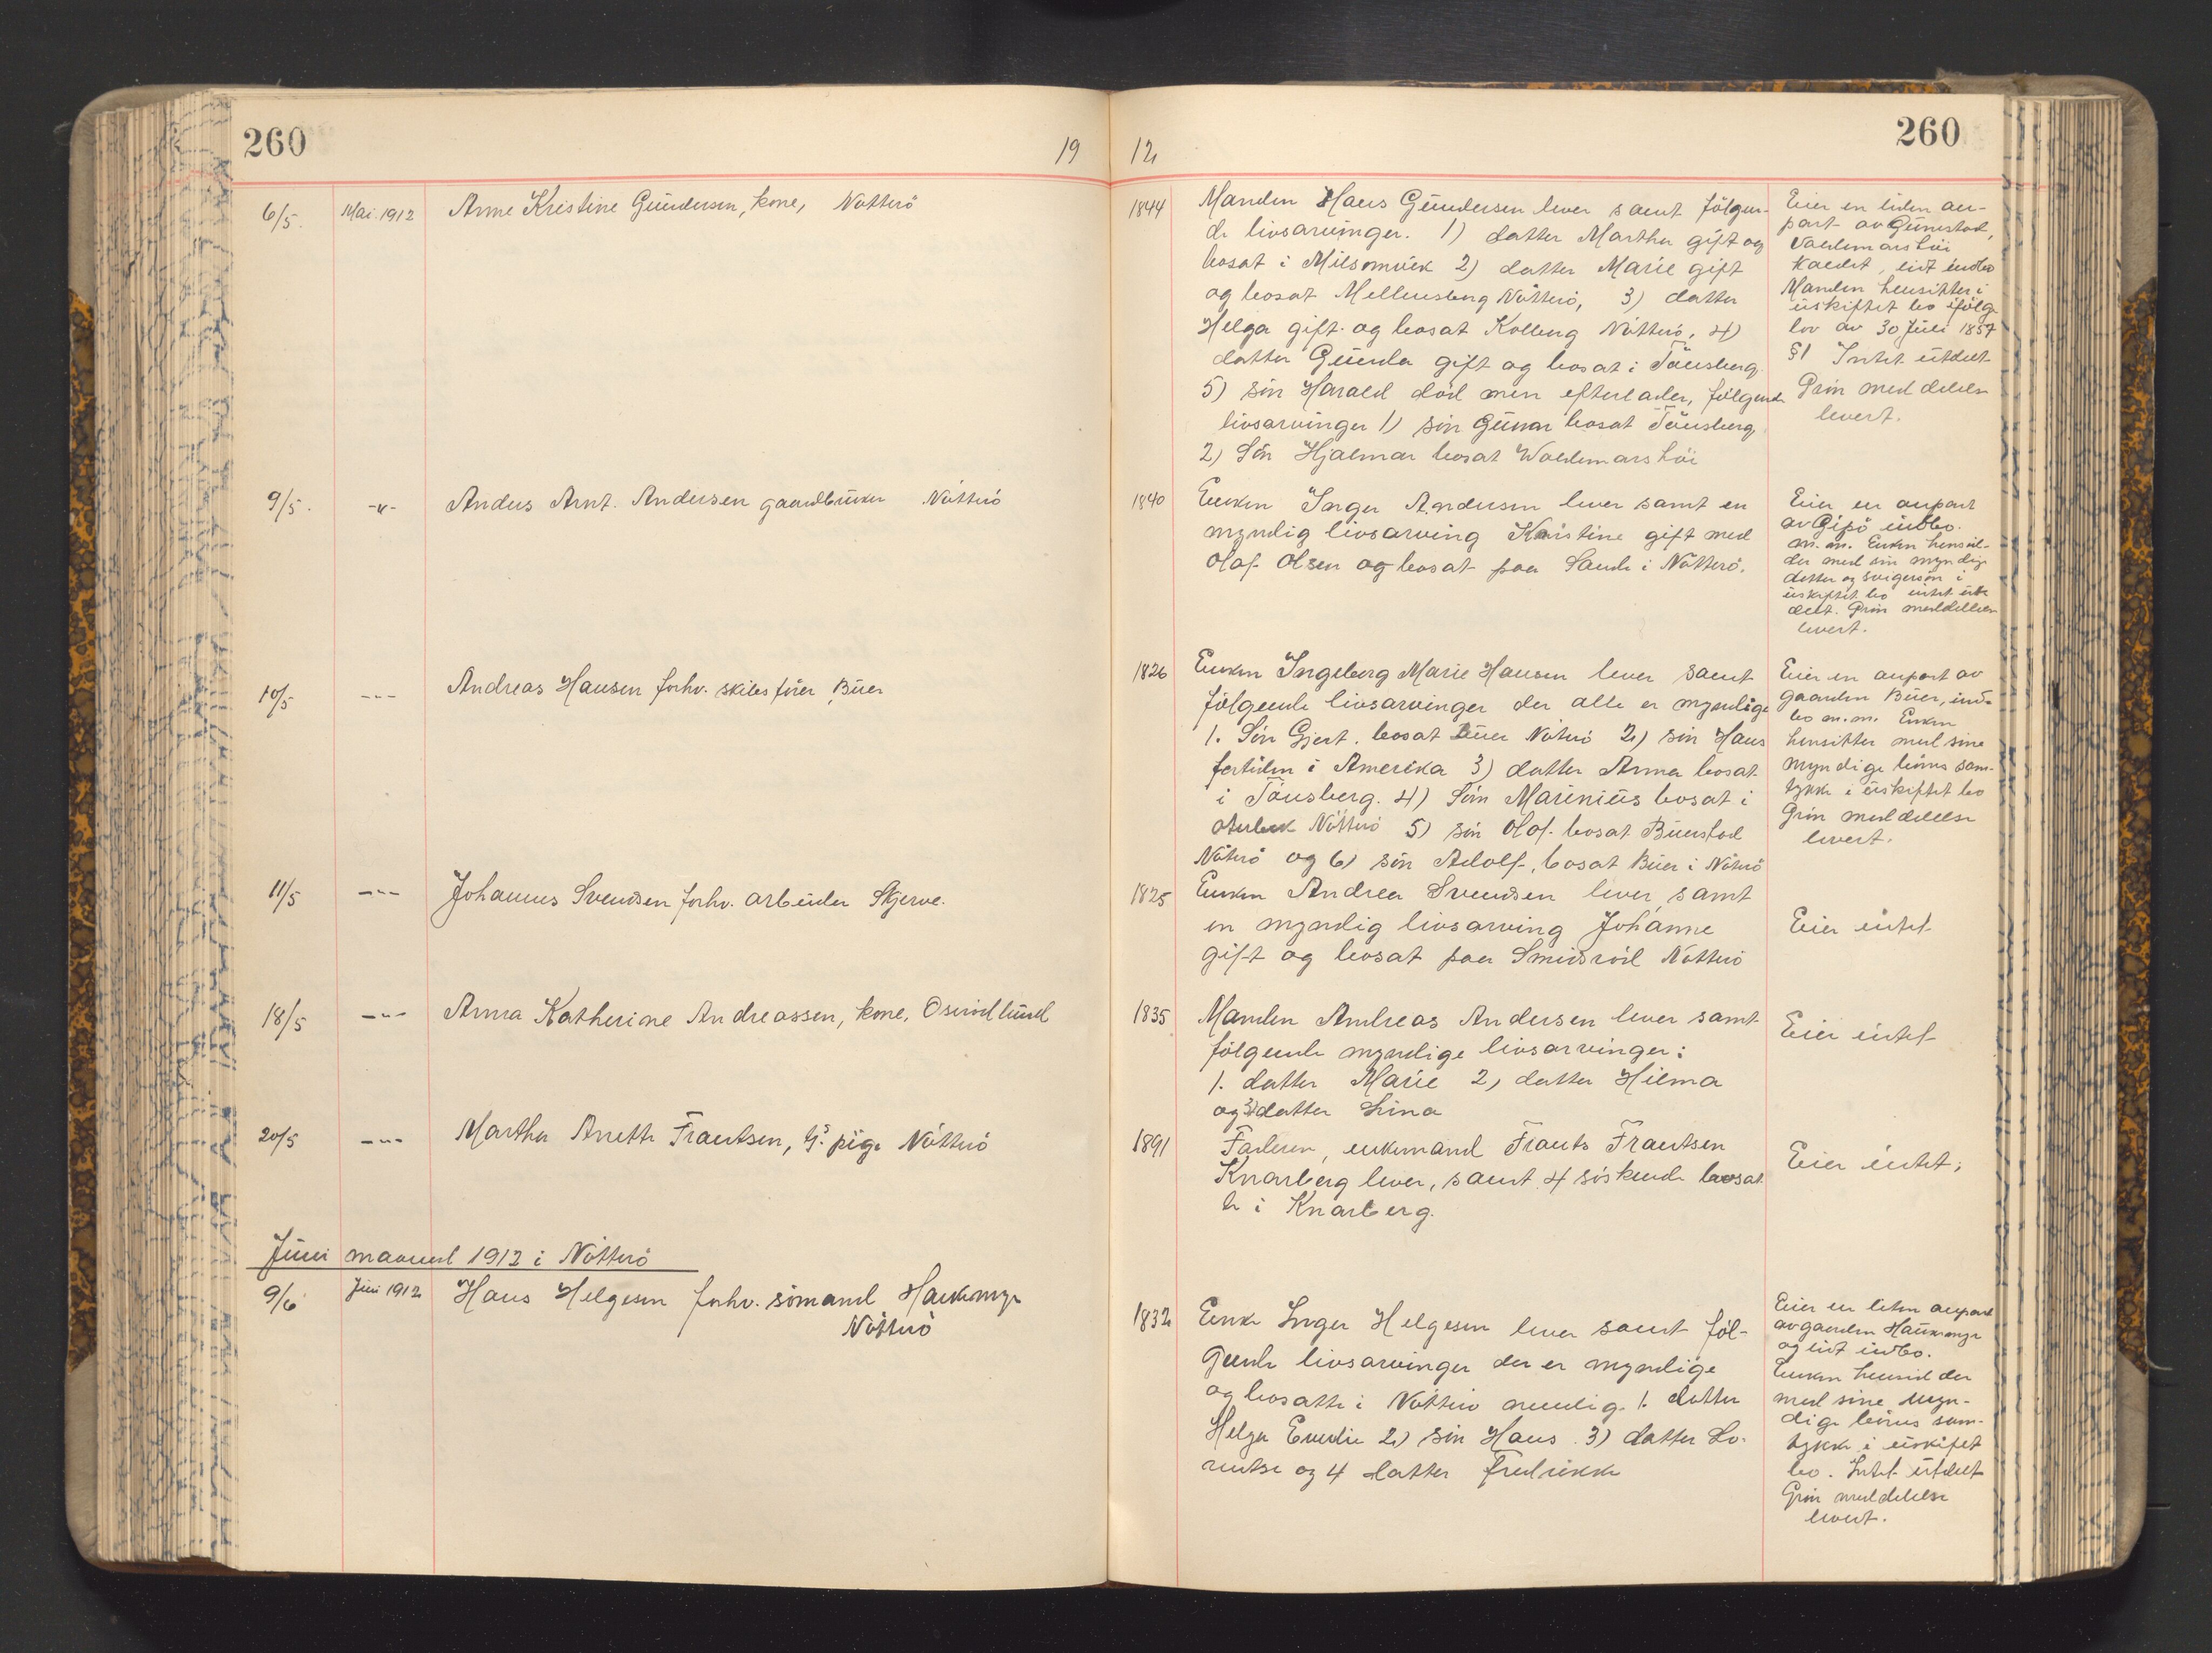 260
19
12
260
6/5. Mai 1912 Anne Kristine Gundersen, kone, Nøtterö
1844 Manden Hans Gundersen lever samt følgen-
de livsarvinger. 1) datter Martha gift og
bosat i Milsomvik 2) datter Marie gift
og bosat Mellensberg Nötterö, 3) datter
Helga gift og bosat Kolberg Nötterö, 4)
datter Gunda gift og bosat i Tönsberg.
5) sön Harald död men efterlader, følgende
livsarvinger 1) sön Gunar bosat Tönsberg
2) Sön Hjalmar bosat Woldemarshöi
Eier en liden an-
part av Gunestad,
Valdemarshöi
kaldet, lidt indbo
Manden hensitter i
uskiftet bo ifølge
lov av 30 Juli 1857
§1 Intet utdelt
Grön meddelelse
levert.
9/5. -"- Anders Arnt. Andersen gaardbruker Nötterö
1840 Enken Inger Andersen lever samt en
myndig livsarving Kristine gift med
Olaf Olsen og bosat paa Sande i Nötterö.
Eier en anpart
av Gipö indbo.
m.m. Enken hensid-
der med sin myndige
datter og svigersön i
uskiftet bo intet ut-
delt. Grön meddelelse
levert.
10/5 -"- Andreas Hansen forhv. skibsfører, Buer
1826 Enken Ingeborg Marie Hansen lever samt
følgende livsarvinger der alle er myndige
1. Sön Gjert. bosat Buer Nöterö 2) sön Hans
fortiden i Amerika 3) datter Anna bosat
i Tönsberg. 4) Sön Marinius bosat i
Oterbek Nötterö 5) sön Olaf. bosat Buerstad
Nöterö og 6) sön Adolf, bosat Buer i Nöterö
Eier en anpart av
gaarden Buer, ind-
bo m.m. Enken
hensitter med sine
myndige börns sam-
tykke i uskiftet bo
Grön meddelelse
levert.
11/5 -"- Johannes Svendsen forhv. arbeider Skjerve.
1825 Enken Andrea Svendsen lever, samt
en myndig livsarving Johanne
gift og bosat paa Smidsröd Nötterö
Eier intet
18/5 -"- Anna Katherine Andreassen, kone, Oserødlund
1835 Manden Andreas Andersen lever samt
følgende myndige livsarvinger:
1. datter Marie 2, datter Hilma
og 3) datter Lina
Eier intet
20/5 -"- Martha Anette Frantsen, G. pige Nötterö
1891 Faderen, enkemand Frants Frantsen
Knarberg lever, samt 4 söskende bosat
te i Knarberg.
Eier intet,
Juni maaned 1912 i Nötterö
9/6 Juni 1912 Hans Helgesen forhv. sömand Haukemyr
Nötterö
1832 Enke Inger Helgesen lever samt föl-
gende livsarvinger der er myndige
og bosatte i Nötterö nemlig. 1. datter
Helga Emelie 2) sön Hans. 3) datter Lo-
rentse og 4 datter Fredrikke
Eier en liten anpart
av gaarden Haukemyr
og lidt indbo.
Enken hensidder
med sine myn-
dige börns sam-
tykke i uskiftet
bo. Intet utdelt
Grön meddelelse
levert.